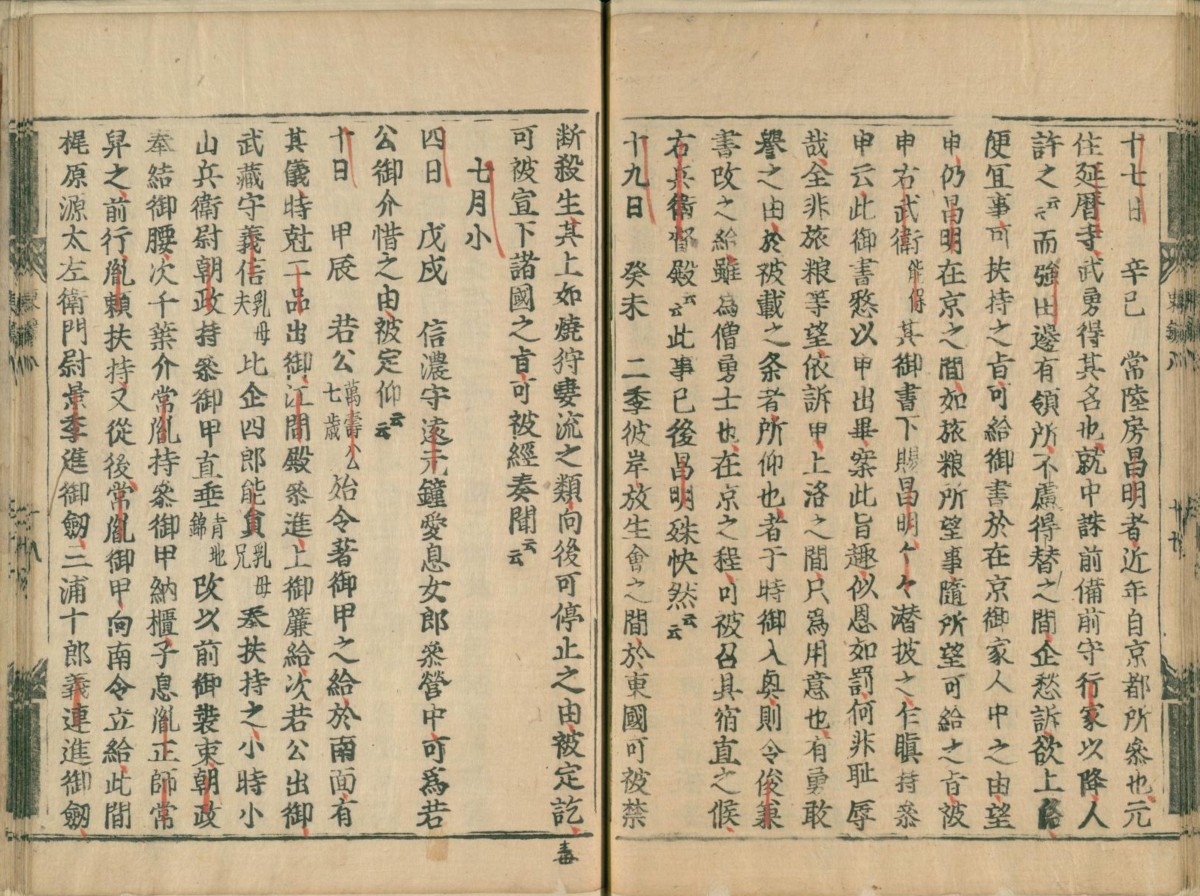 十七日 辛巳 常陸房昌明者近年自京都所参也元
住延暦寺武勇得其名也就中誅前備前守行家以降人
許之云々而強田邊有領所不慮得替之間企愁訴欲上洛
便宜事可扶持之旨可給御書於在京御家人中之由望
申仍昌明在京之間如旅粮所望事隨所望可給之旨被
申右武衛能保其御書下賜昌明々々潜披之乍瞋持参
申云此御書愁以申出畢案此旨趣似恩如罰何非耻辱
哉全非旅粮等望依訴申上洛之間只為用意也有勇敢
譽之由於被載之条者所仰也者于時御入興則令俊兼
書改之給雖為僧勇士也在京之程可被召具宿直之候
右兵衛督殿云云此事已後昌明殊快然云云
十九日 癸未 二季彼岸放生會之間於東國可被禁
断殺生其上如焼狩毒流之類向後可停止之由被定訖
可被宣下諸國之旨可被經奏聞云云
七月小
四日 戊戌 信濃守遠元鐘愛息女郎参營中可為若
公御介惜之由被定仰云云
十日 甲辰 若公萬壽公七歳始令著御甲之給於南面有
其儀時尅二品出御江間殿参進上御簾給次若公出御
武藏守義信乳母夫比企四郎能員乳母兄奉扶持之小時小
山兵衛尉朝政持参御甲直垂青地錦改以前御裝束朝政
奉結御腰次千葉介常胤持参御甲納櫃子息胤正師常
舁之前行胤頼扶持又從後常胤御甲向南令立給此間
梶原源太左衛門尉景季進御劔三浦十郎義連進御劔
毒